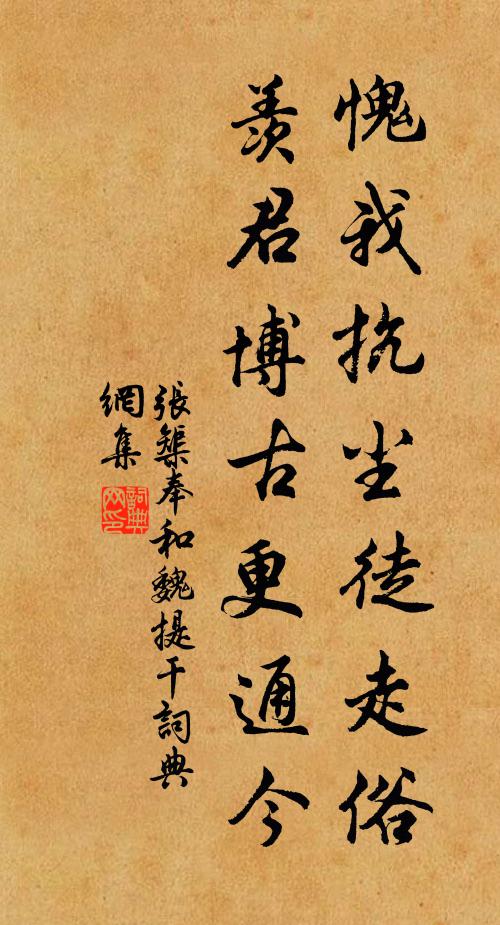 愧我抗尘徒走俗
羨君博古更通今
張榘奉和魏提干詞典
網集
詞典
网印